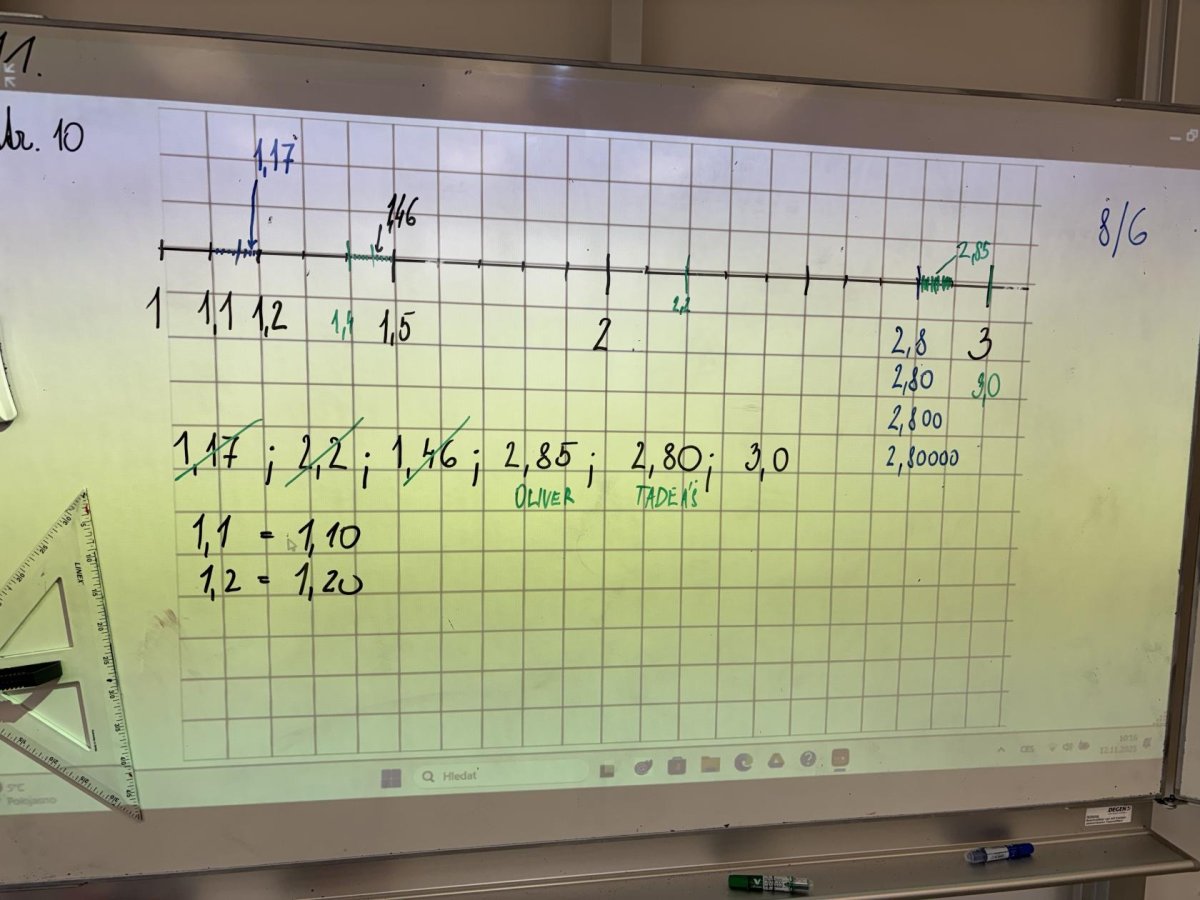 11.
str. 10
1,17
1,46
8/6
2,85
1 1,1 1,2 1,4 1,5 2 2,2 2,8 3
2,80 3,0
2,800
2,80000
1,17 ; 2,2 ; 1,46 ; 2,85 ; 2,80 ; 3,0
OLIVER TADEÁŠ
1,1 = 1,10
1,2 = 1,20
LINEX
5°C
Polojasno
Hledat
CES
10:16
12.11.2025
DEGEN